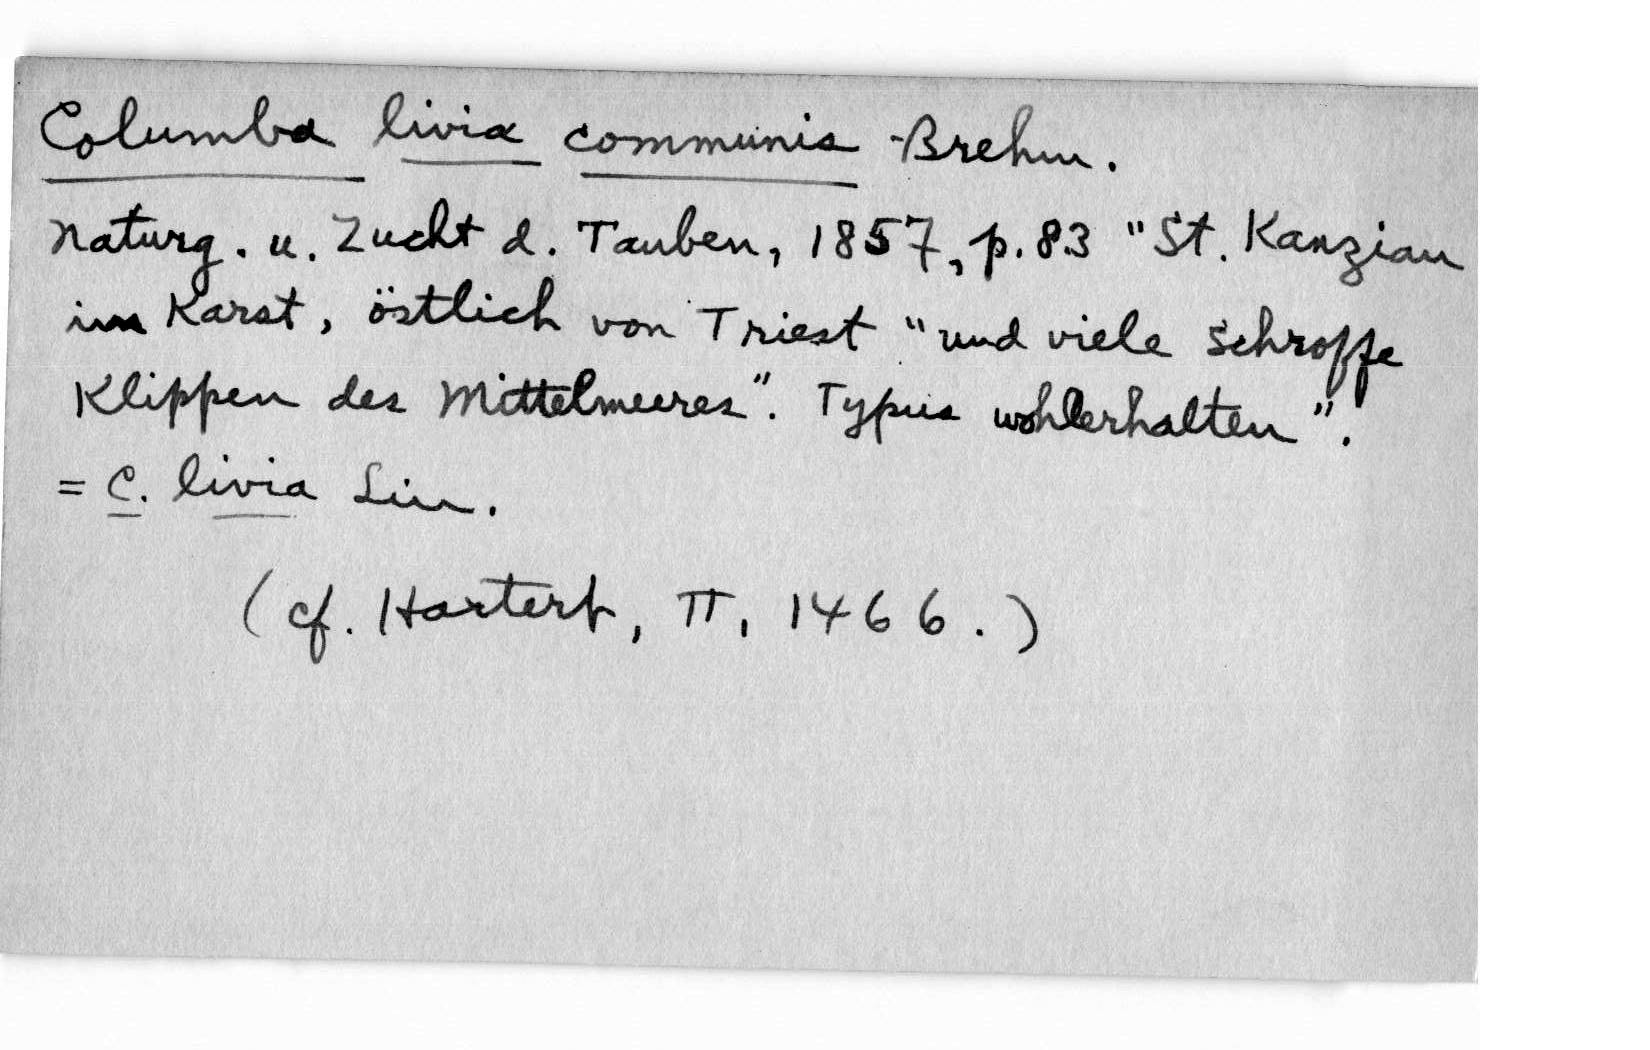 Columba livia communis Brehm.
Naturg. u. Zucht d. Tauben, 1857, p. 83 "St. Kanzian
im Karst, östlich von Triest "und viele schroffe
Klippen des Mittelmeeres". Typus wohlerhalten".
= C. livia Lin.
(cf. Hartert, II, 1466.)